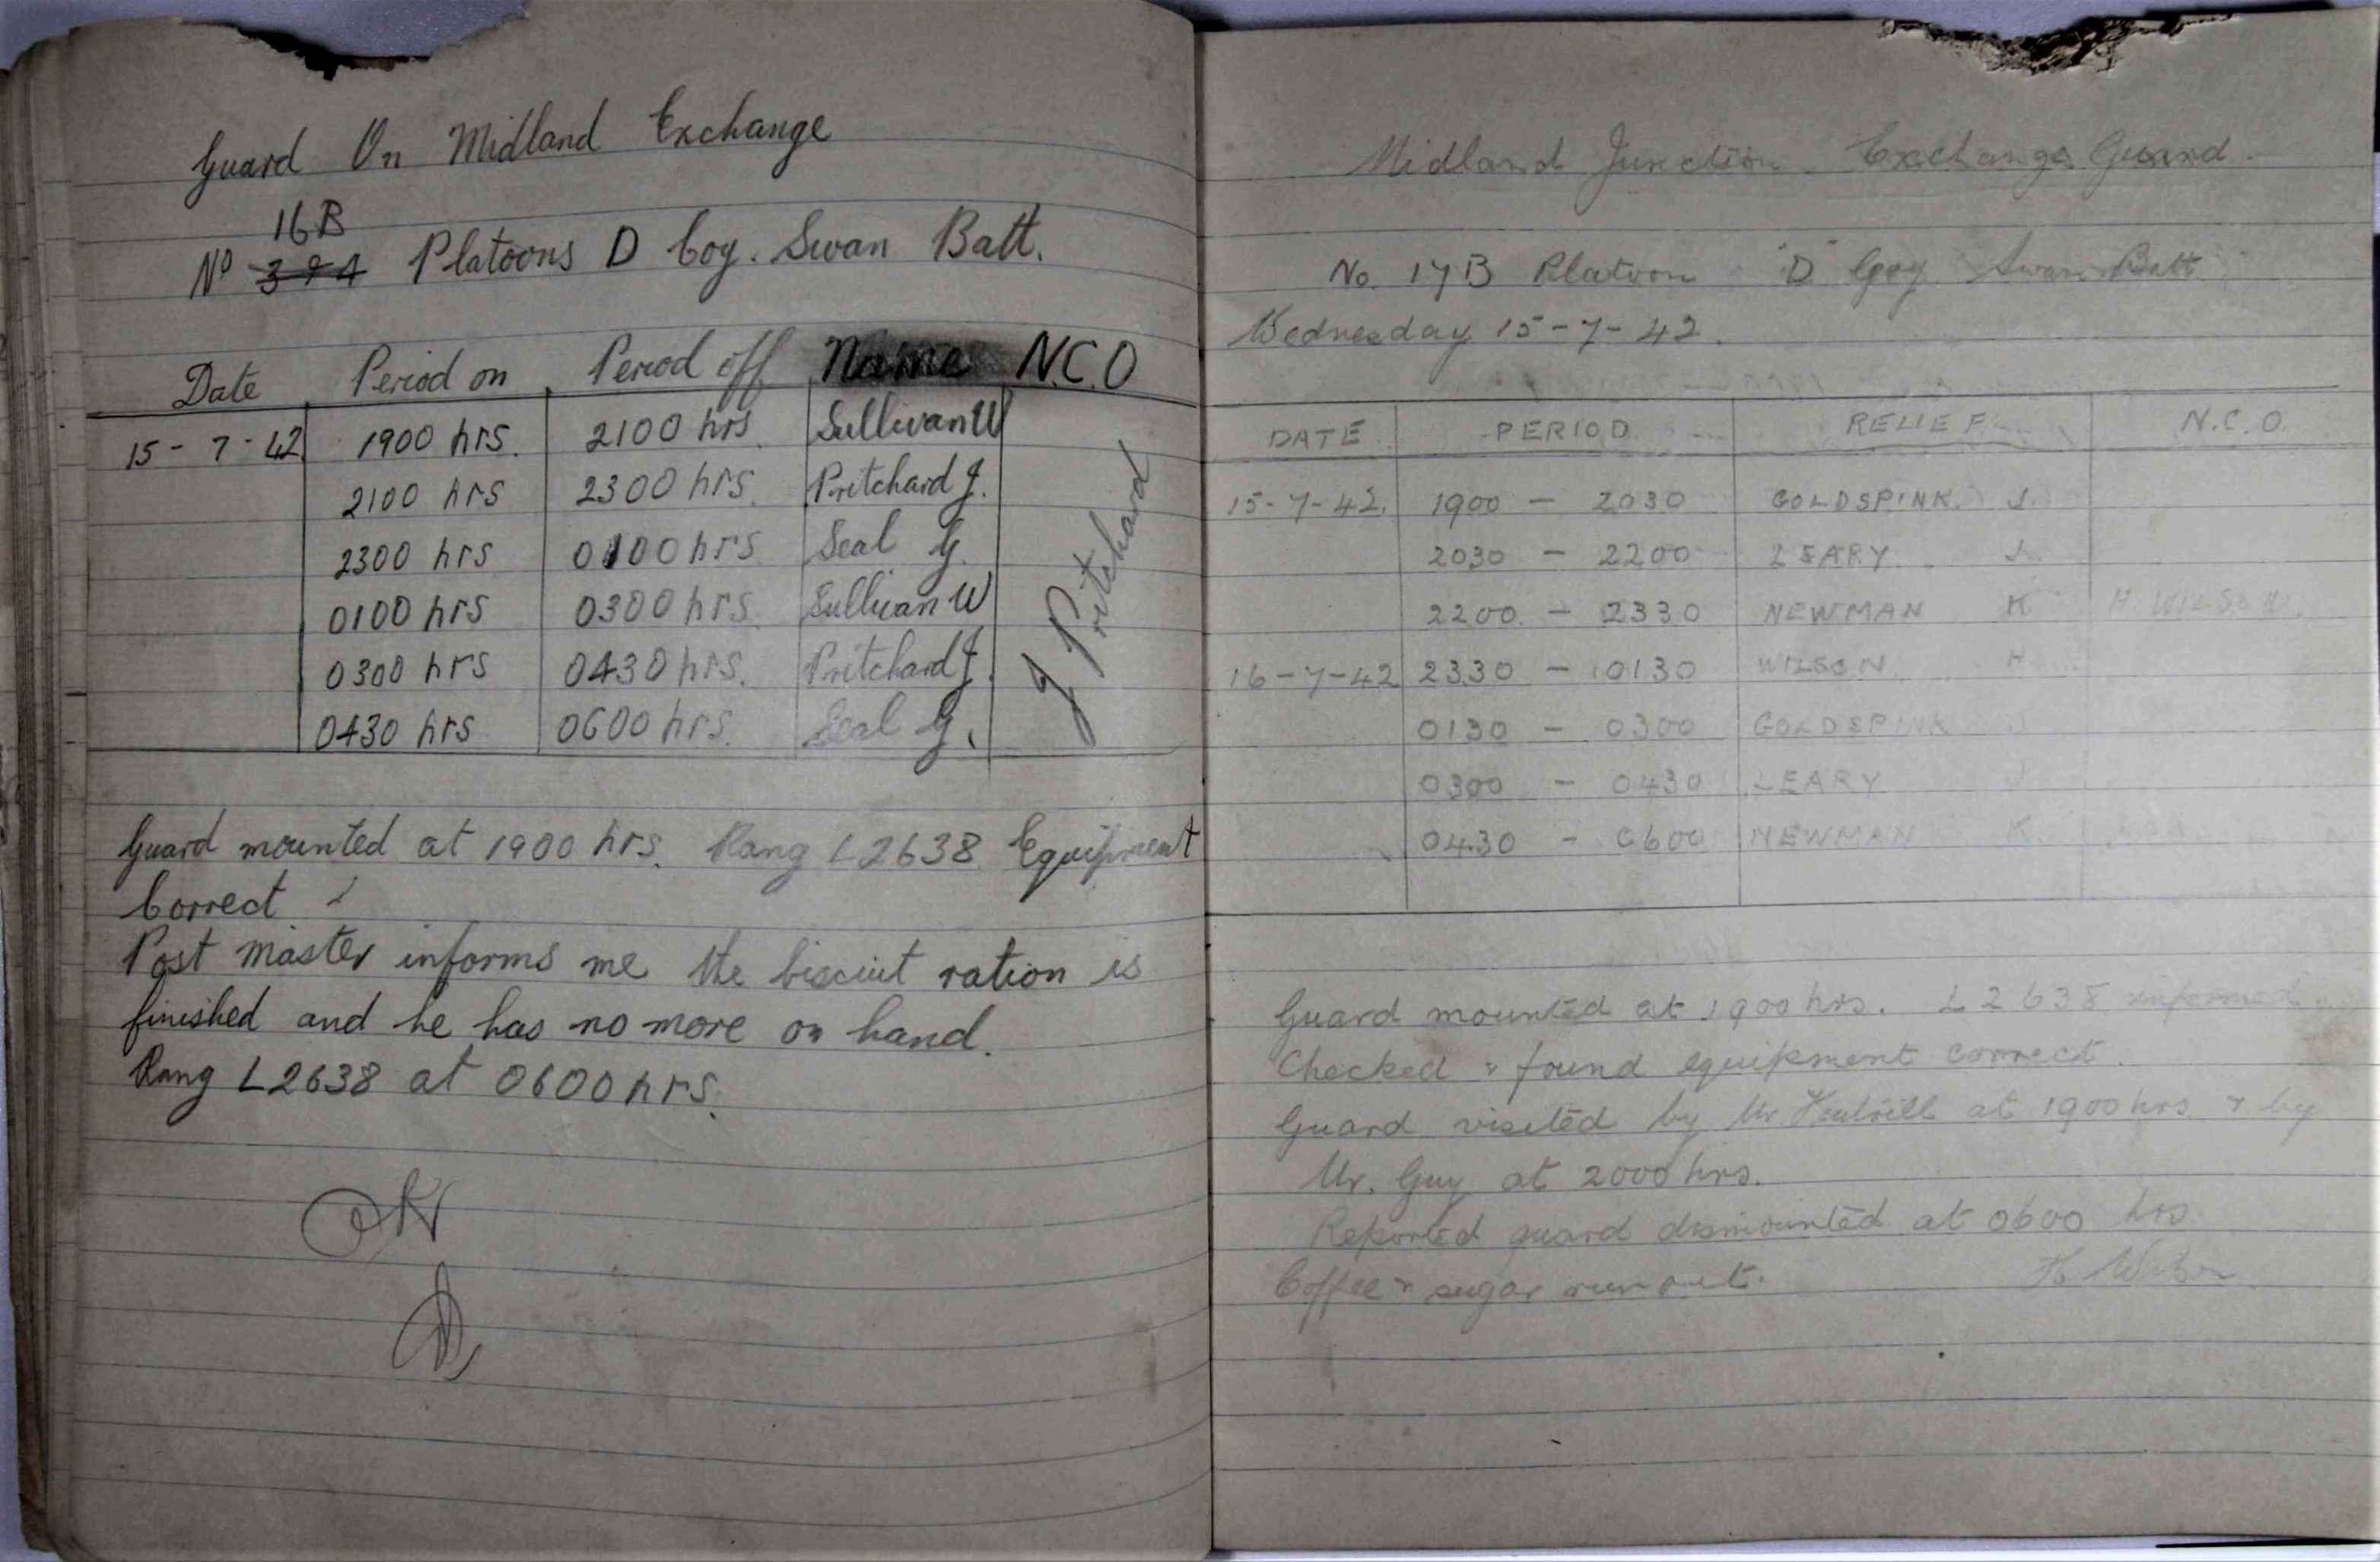 Guard On Midland Exchange
16B
No 39A Platoons D Coy. Swan Batt.
Date Period on Period off Name N.C.O
15-7-42 1900 hrs. 2100 hrs. Sullivan W
2100 hrs 2300 hrs. Pritchard J.
2300 hrs 0100 hrs Seal G.
0100 hrs 0300 hrs. Sullivan W
0300 hrs 0430 hrs. Pritchard J.
0430 hrs 0600 hrs. Seal G.
J Pritchard
Guard mounted at 1900 hrs. Rang L2638 Equipment
Correct
Post master informs me the biscuit ration is
finished and he has no more on hand.
Rang L2638 at 0600 hrs.
OK
Midland Junction Exchange Guard.
No. 17B Platoon "D" Coy Swan Batt
Wednesday 15-7-42.
DATE PERIOD RELIEF N.C.O.
15-7-42. 1900 - 2030 GOLDSPINK J.
2030 - 2200 LEARY J.
2200 - 2330 NEWMAN K H WILSON.
16-7-42 2330 - 0130 WILSON H
0130 - 0300 GOLDSPINK J
0300 - 0430 LEARY J
0430 - 0600 NEWMAN K
Guard mounted at 1900 hrs. L2638 informed.
Checked & found equipment correct.
Guard visited by Mr at 1900 hrs & by
Mr. Guy at 2000 hrs.
Reported guard dismounted at 0600 hrs
Coffee & sugar run out. H Wilson